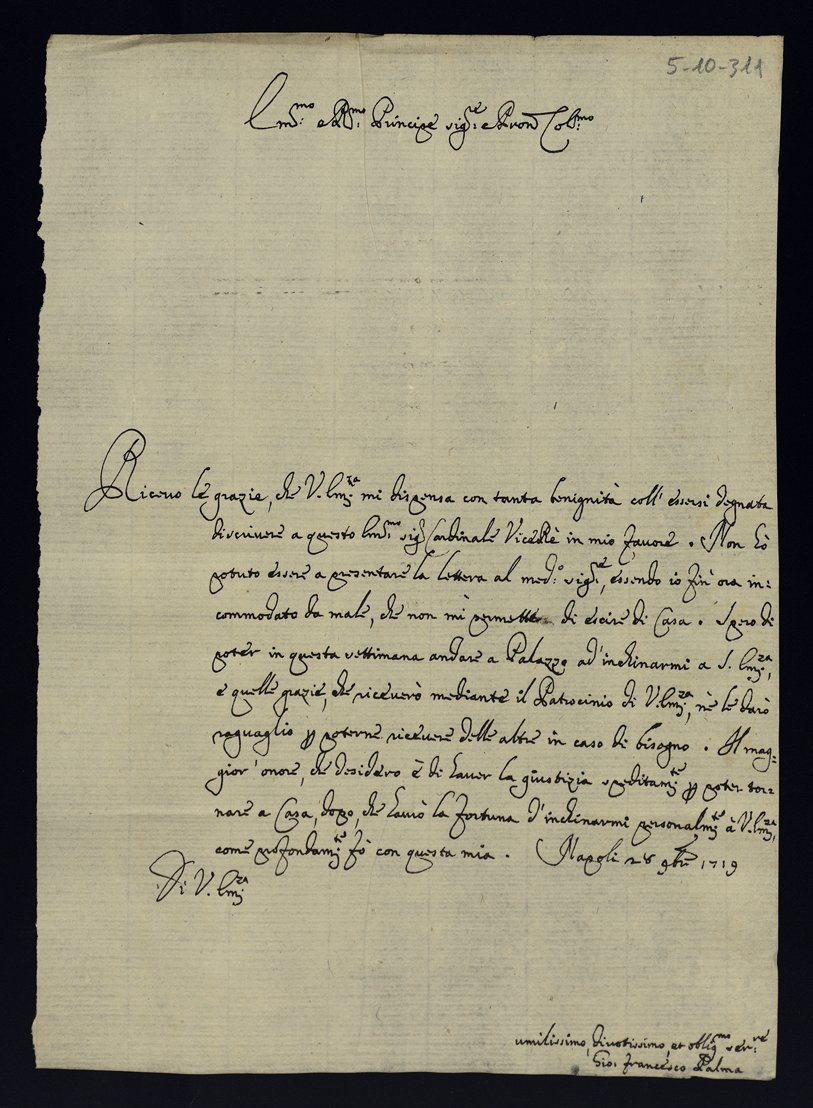 5-10-311
Em:mo e Rmo: Principe sig:re e Pron Col:mo
Riceuo le grazie, che V. Em:za mi dispensa con tanta benignità coll' essersi degnata
di scriuere a questo Em:mo sig:r Cardinale ViceRè in mio fauore. Non hò
potuto essere a presentare la lettera al med:o sig:re, essendo io fin' ora in=
commodato da male, che non mi permette di escire di Casa. Spero di
poter in questa settimana andare a Palazzo ad' inchinarmi a S. Em:za,
e quelle grazie, che riceuerò mediante il Patrocinio di V. Em:za, nè le darò
raguaglio p poterne riceuere delle altre in caso di bisogno. Il mag=
gior' onore, che desidero è di hauer la giustizia speditam:te p poter tor=
nare a Casa, dopo, che haurò la fortuna d'inchinarmi personalm:te à V. Em:za,
come profondam:te fò con questa mia. Napoli 28 9bre 1719
Di V. Em:za
umilissimo, diuotissimo, et oblig:mo ser:re
Gio: Francesco Palma